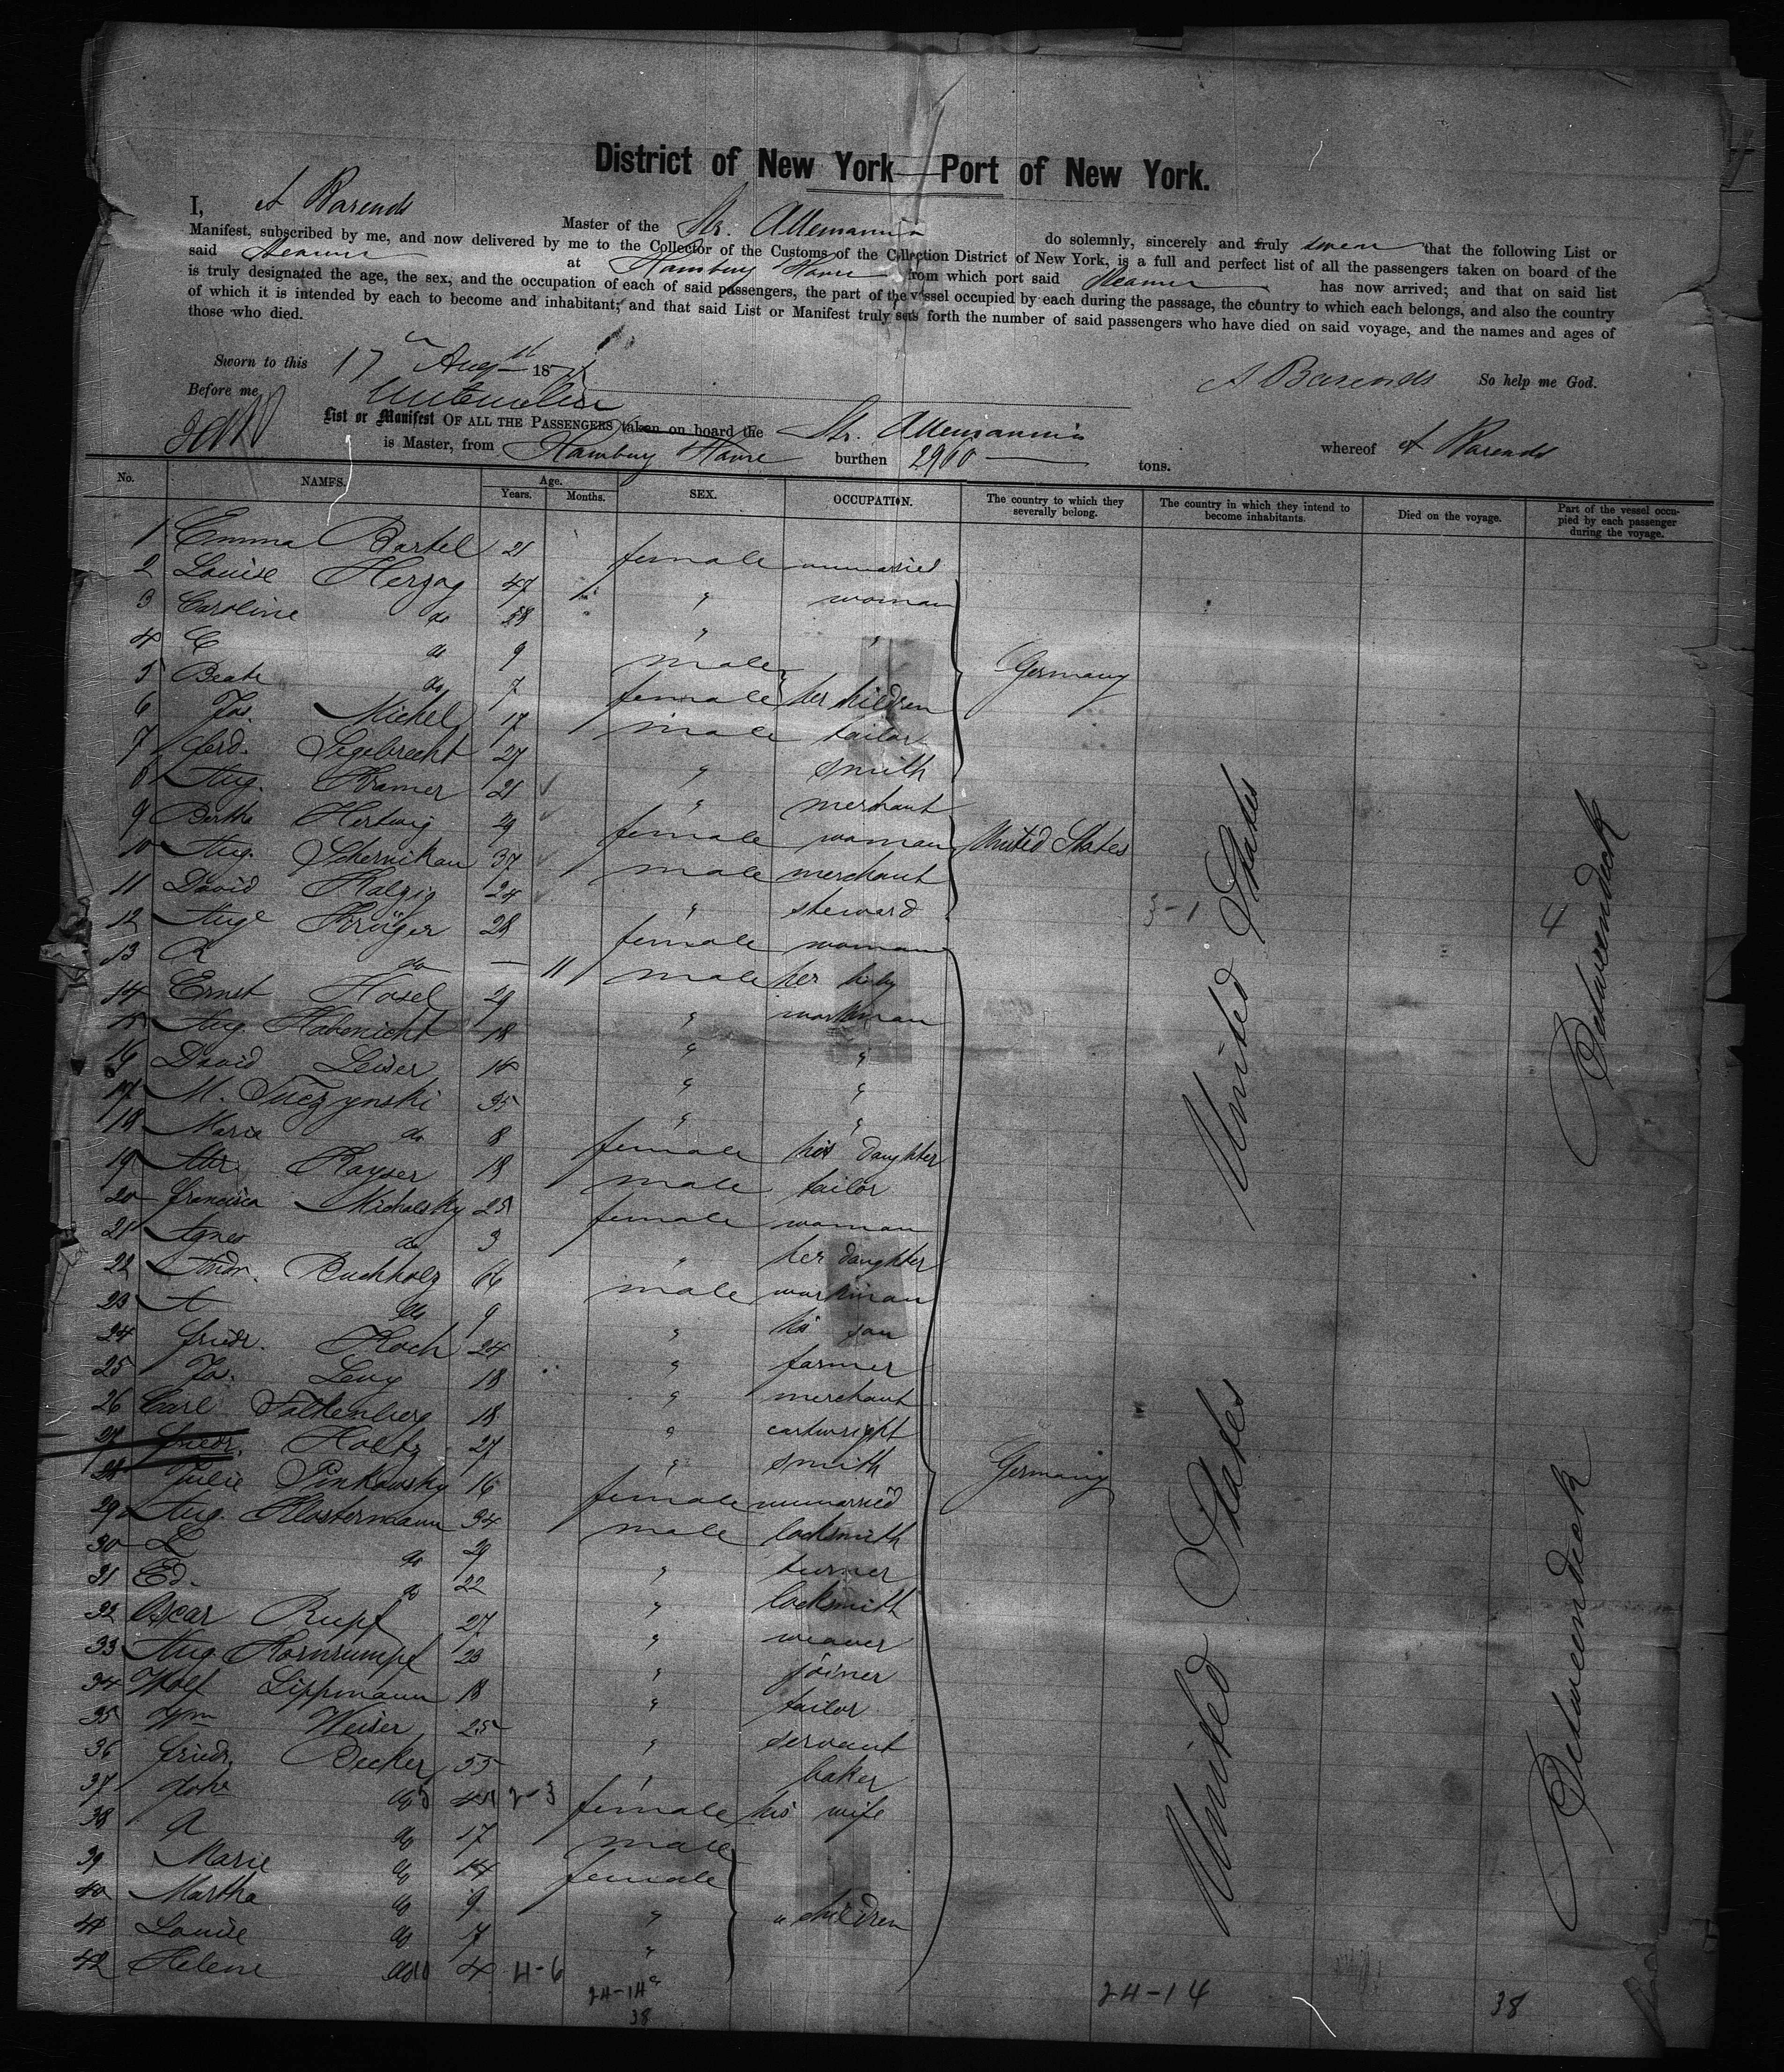 District of New York—Port of New York.
I, A Barends Master of the Str. Allemannia do solemnly, sincerely and truly swear that the following List or
Manifest, subscribed by me, and now delivered by me to the Collector of the Customs of the Collection District of New York, is a full and perfect list of all the passengers taken on board of the
said Steamer at Hamburg Havre from which port said Steamer has now arrived; and that on said list
is truly designated the age, the sex, and the occupation of each of said passengers, the part of the vessel occupied by each during the passage, the country to which each belongs, and also the country
of which it is intended by each to become and inhabitant; and that said List or Manifest truly sets forth the number of said passengers who have died on said voyage, and the names and ages of
those who died.
Sworn to this 17 Augst 187 A Barends So help me God.
Before me
List or Manifest OF ALL THE PASSENGERS taken on board the Str. Allemannia whereof A Barends
is Master, from Hamburg Havre burthen 2960 tons.
No. NAMES. Age. Years. Months. SEX. OCCUPATION. The country to which they severally belong. The country in which they intend to become inhabitants. Died on the voyage. Part of the vessel occupied by each passenger during the voyage.
1 Emma Bartel 21 female unmarried
2 Louise Herzog 47 " woman
3 Caroline do 38 " "
4 C do 9 male
5 Beate do 7 female her children Germany
6 Jos. Michel 17 male tailor
7 Ferd. Segebrecht 27 " smith
8 Aug. Kramer 21 " merchant
9 Bertha Hertwig 29 female woman United States
10 Aug. Schernikau 37 male merchant
11 David Kalzig 24 " steward 3-1 4
12 Auge Krüger 28 female woman
13 R do — 11 male her baby
14 Ernst Hosel 29 " workman
15 Aug. Habenicht 18 " "
16 David Leiser 14 " "
17 M. Tuczynski 35 " "
18 Marie do 8 female his daughter
19 Abr. Kayser 18 male tailor
20 Francisca Michalsky 25 female woman
21 Agnes do 3 " her daughter
22 Andr. Buchholz 66 male workman
23 A do 9 " his son
24 Friedr. Koch 24 " farmer
25 Jos. Levy 18 " merchant
26 Carl Faltenberg 18 " cartwright
27 Friedr. Holtz 27 " smith
28 Julie Pinkowsky 16 female unmarried Germany
29 Aug. Klostermann 34 male locksmith
30 L do 29 " turner
31 Ed. do 22 " locksmith
32 Oscar Rupf 27 " weaver
33 Aug. Kornrumpf 23 " joiner
34 Wolf Lippmann 18 " tailor
35 Wm Weiser 25 " servant
36 Friedr. Becker 55 " baker
37 Johe do 45 2-3 female his wife
38 A do 17 male
39 Marie do 14 female
40 Martha do 9 " " children
41 Louise do 7 "
42 Helene do 4 4-6 "
24-14 24-14 38
38
United States
United States
Betweendeck
Betweendeck